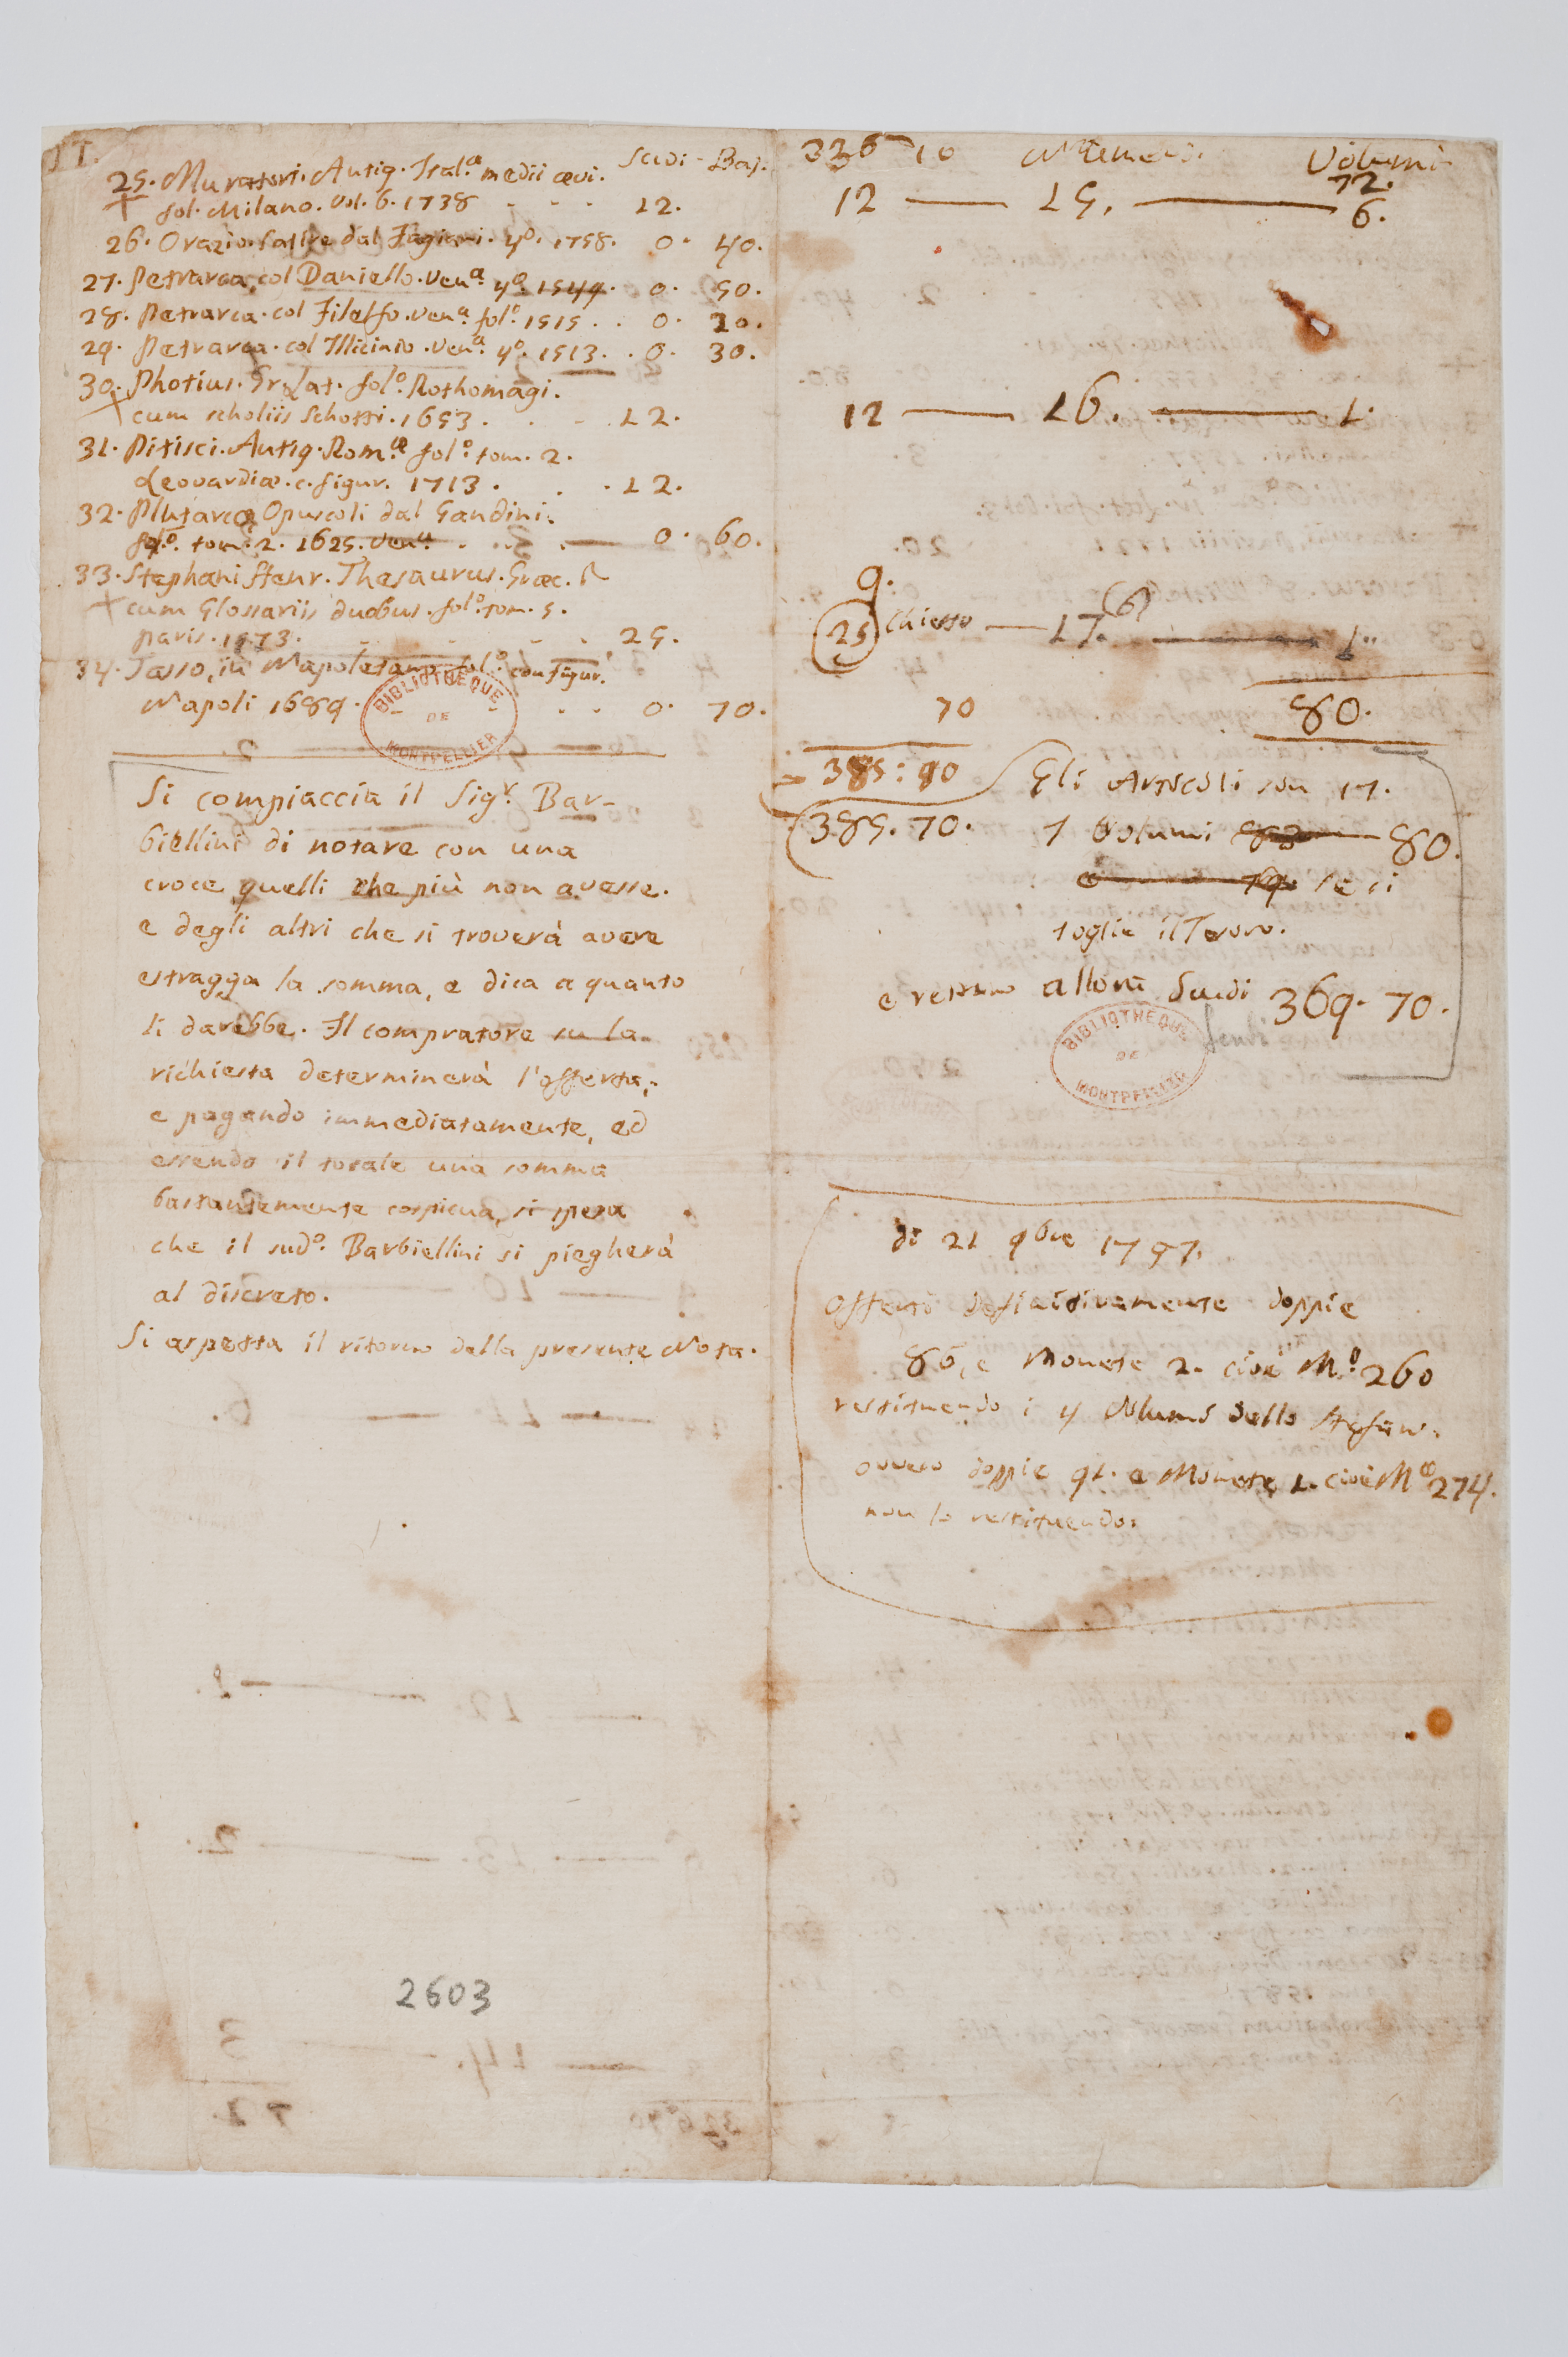 II.
Scudi - Baj.
25. Muratori. Antiq. Ital.ª medii ævi.
fol. Milano. Vol. 6. 1738 - - - 12.
26. Orazio. Satire dal Fagiani. 4º. 1758. 0. 40.
27. Petrarca, col Daniello. Ven.ª 4º. 1549. 0. 50.
28. Petrarca. col Filelfo. Ven.ª fol.º 1515. . 0. 20.
29. Petrarca. col Illicinio. Ven.ª 4º. 1513. . 0. 30.
30. Photius. Gr. Lat. fol.º Rothomagi.
+ cum scholiis Schotti. 1653. . . - 12.
31. Pitisci. Antiq. Rom.æ fol.º tom. 2.
Leovardiæ. c. figur. 1713. . . . 12.
32. Plutarco, Opuscoli dal Gandini.
fol.º tom. 2. 1625. Ven.ª . . — 0. 60.
33. Stephani Henr. Thesaurus. Græc. L
+ cum Glossariis duobus. fol.º tom. 5.
Paris. 1573. - - - . 25.
34. Tasso, in Napoletano. fol.º con figur.
Napoli 1689. . . 0. 70.
BIBLIOTHEQUE
DE
MONTPELLIER
Si compiaccia il Sig.r Bar-
biellini di notare con una
croce quelli che più non avesse.
e degli altri che si troverà avere
estragga la somma, e dica a quanto
li darebbe. Il compratore su la
richiesta determinerà l'offerta;
e pagando immediatamente, ed
essendo il totale una somma
bastantemente cospicua, si spera
che il sud.º Barbiellini si piegherà
al discreto.
Si aspetta il ritorno della presente Nota.
2603
336 10 Volumi
72.
12 — 15. — 6.
12 — 16. — 1.
9.
25 chiesto — 17. (6) — 1..
70 80.
385: 80 Gli Articoli son 17.
385. 70. I Volumi 80.
se si
toglie il Tesoro.
e restano allora Scudi 369. 70.
Scudi
BIBLIOTHEQUE
DE
MONTPELLIER
di 21 9bre 1797.
Offerto definitivamente doppie
86, e Monete 2. cioè M.e 260
restituendo i 4 Volumi dello Stefano.
ovvero doppie 91. e Monete 1. cioè M.e 274.
non lo restituendo.